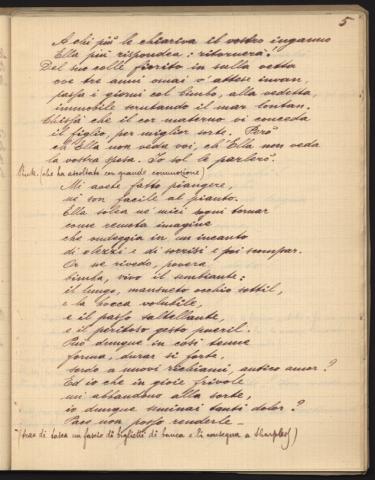 5
A chi più le chiariva il vostro inganno
Ella più rispondea: ritornerà!
Del suo colle fiorito in sulla vetta
ove tre anni omai v'attese invan,
passa i giorni col bimbo, alla vedetta,
immobile scrutando il mar lontan.
Chissà che il cor materno vi conceda
il figlio, per miglior sorte. Però
ch'Ella non veda voi, ch'Ella non veda
la vostra sposa. Io sol le parlerò.
Pink. (che ha ascoltato con grande commozione)
Mi avete fatto piangere,
nè son facile al pianto.
Ella solea ne' miei sogni tornar
come remota imagine
che ondeggia in un incanto
di olezzi e di sorrisi e poi scompar.
Or ne rivedo, povera
bimba, vivo il sembiante:
il lungo, mansueto occhio sottil,
e la bocca volubile,
e il passo saltellante,
e il peritoso gesto pueril.
Può dunque in così tenue
forma, durar sì forte,
sordo a nuovi richiami, antico amor?
Ed io che in gioie frivole
mi abbandono alla sorte,
io dunque seminai tanto dolor?
Pace non posso renderle –
(trae di tasca un fascio di biglietti di banca e li consegna a Sharpless)